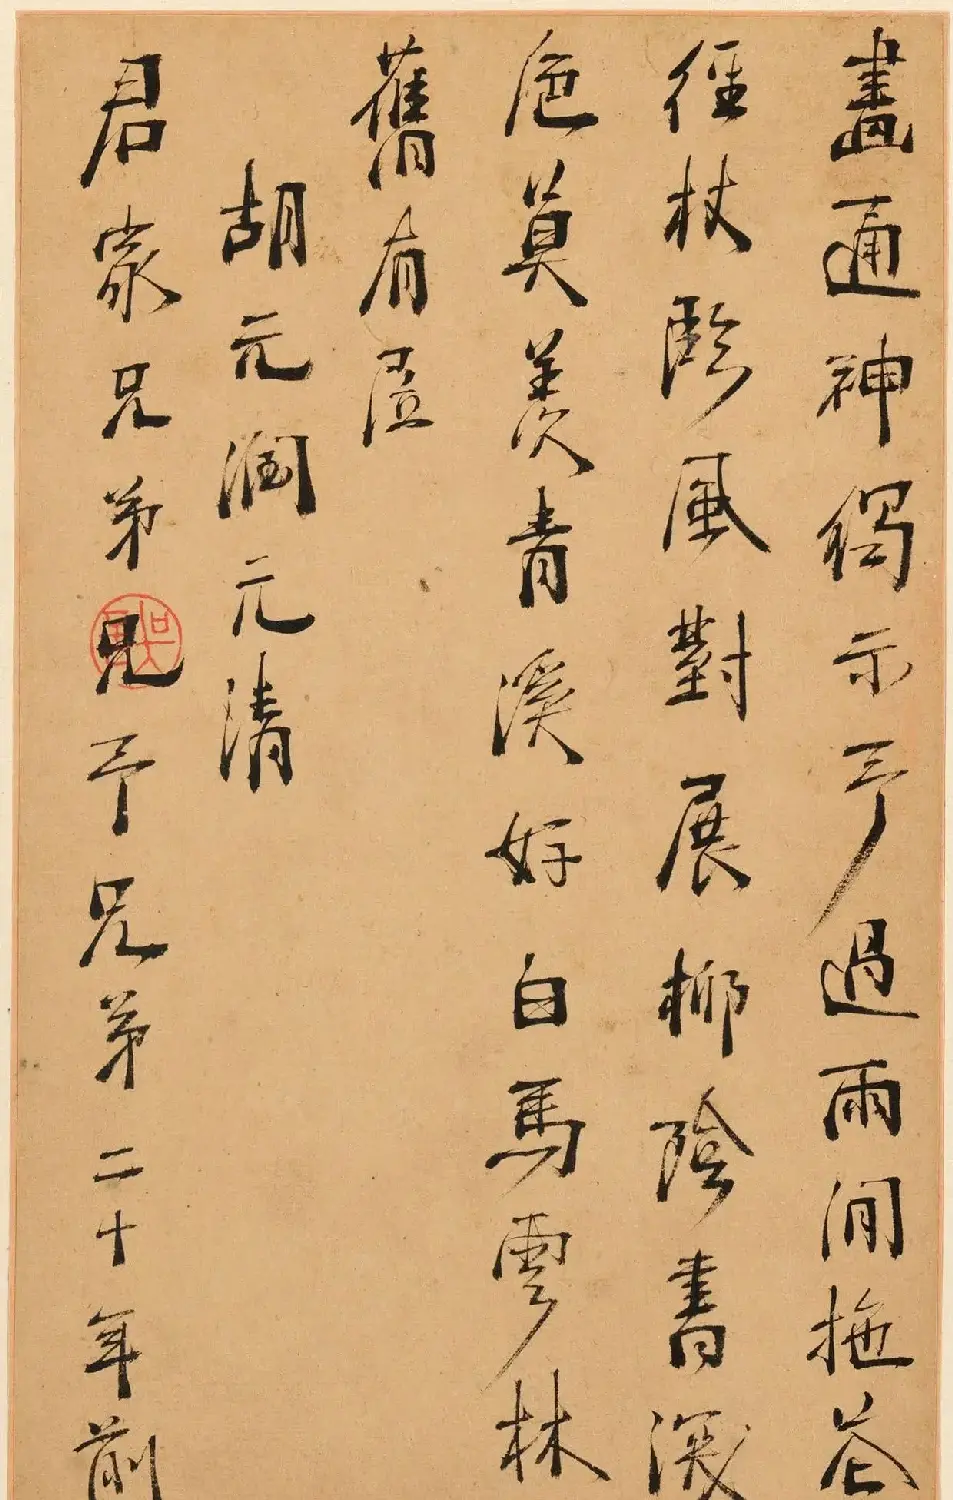 畫通神獨示予過雨閒拖花
徑杖臨風對展柳陰書深
卮莫羨青溪好白馬雲林
舊有廬
胡元潤元清
君家兄弟兄予兄弟二十年前